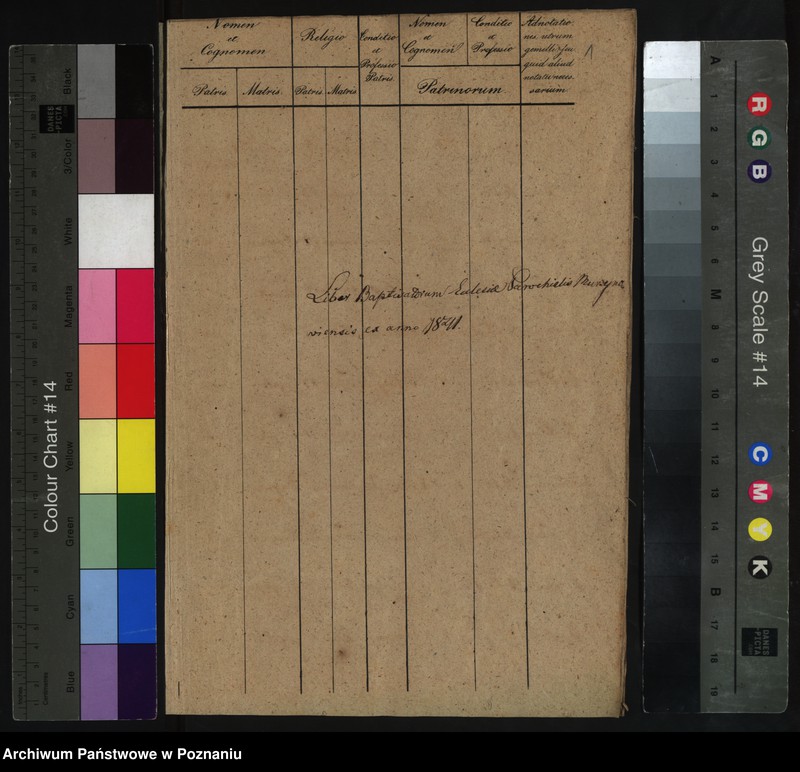 Nomen et Cognomen
Religio
Conditio et Professio Patris
Nomen et Cognomen
Conditio et Professio
Adnotatio
Patris
Matris
Patris
Matris
Patrinorum
1
Liber Baptisatorum Eclesiæ Parochialis
wiensis ex anno 1841.
Colour Chart #14
Black
3/Color
White
Magenta
Red
Yellow
Green
Cyan
Blue
DANES
-PICTA
Grey Scale #14
R
G
B
C
M
Y
K
A
1
2
3
4
5
6
M
8
9
10
11
12
13
14
15
B
17
18
19
DANES
-PICTA
Archiwum Państwowe w Poznaniu